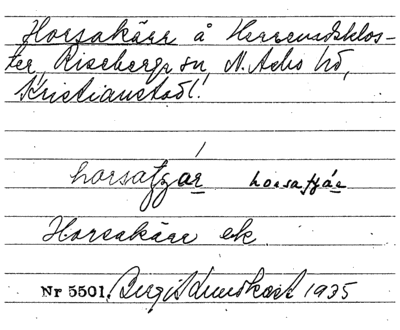 Horsakärr å Herrevadsklos-
ter, Riseberga sn, N. Åsbo hd,
Kristianstads l.
horsatjár horsatjár
Horsakärr ek.
Nr 5501. Birgit 1935